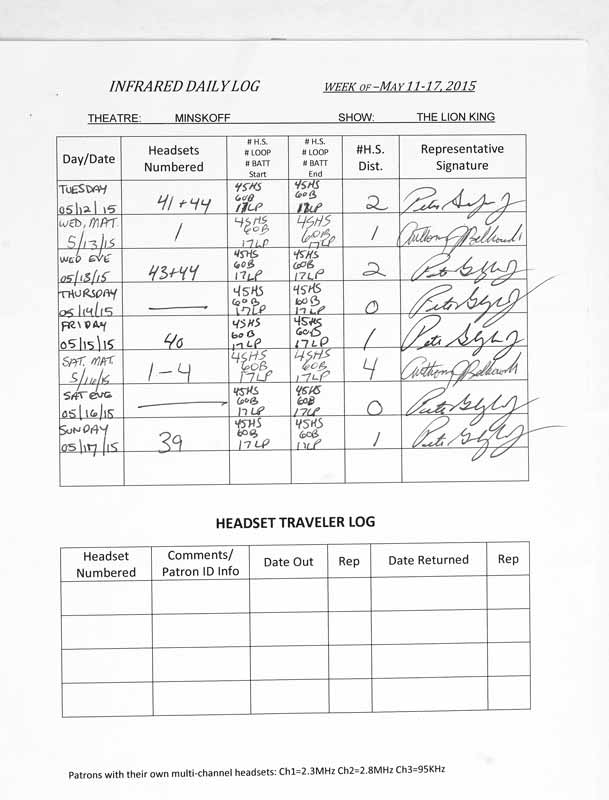 INFRARED DAILY LOG WEEK OF –MAY 11-17, 2015
THEATRE: MINSKOFF SHOW: THE LION KING
Day/Date Headsets Numbered # H.S. # LOOP # BATT Start # H.S. # LOOP # BATT End #H.S. Dist. Representative Signature
TUESDAY 05/12/15 41+44 45HS 60B 17LP 45HS 60B 17LP 2
WED, MAT. 5/13/15 1 45HS 60B 17LP 45HS 60B 17LP 1
WED EVE 05/13/15 43+44 45HS 60B 17LP 45HS 60B 17LP 2
THURSDAY 05/14/15 — 45HS 60B 17LP 45HS 60B 17LP 0
FRIDAY 05/15/15 40 45HS 60B 17LP 45HS 60B 17LP 1
SAT. MAT. 5/16/15 1-4 45HS 60B 17LP 45HS 60B 17LP 4
SAT EVE 05/16/15 — 45HS 60B 17LP 45HS 60B 17LP 0
SUNDAY 05/17/15 39 45HS 60B 17LP 45HS 60B 17LP 1
HEADSET TRAVELER LOG
Headset Numbered Comments/ Patron ID Info Date Out Rep Date Returned Rep
Patrons with their own multi-channel headsets: Ch1=2.3MHz Ch2=2.8MHz Ch3=95KHz